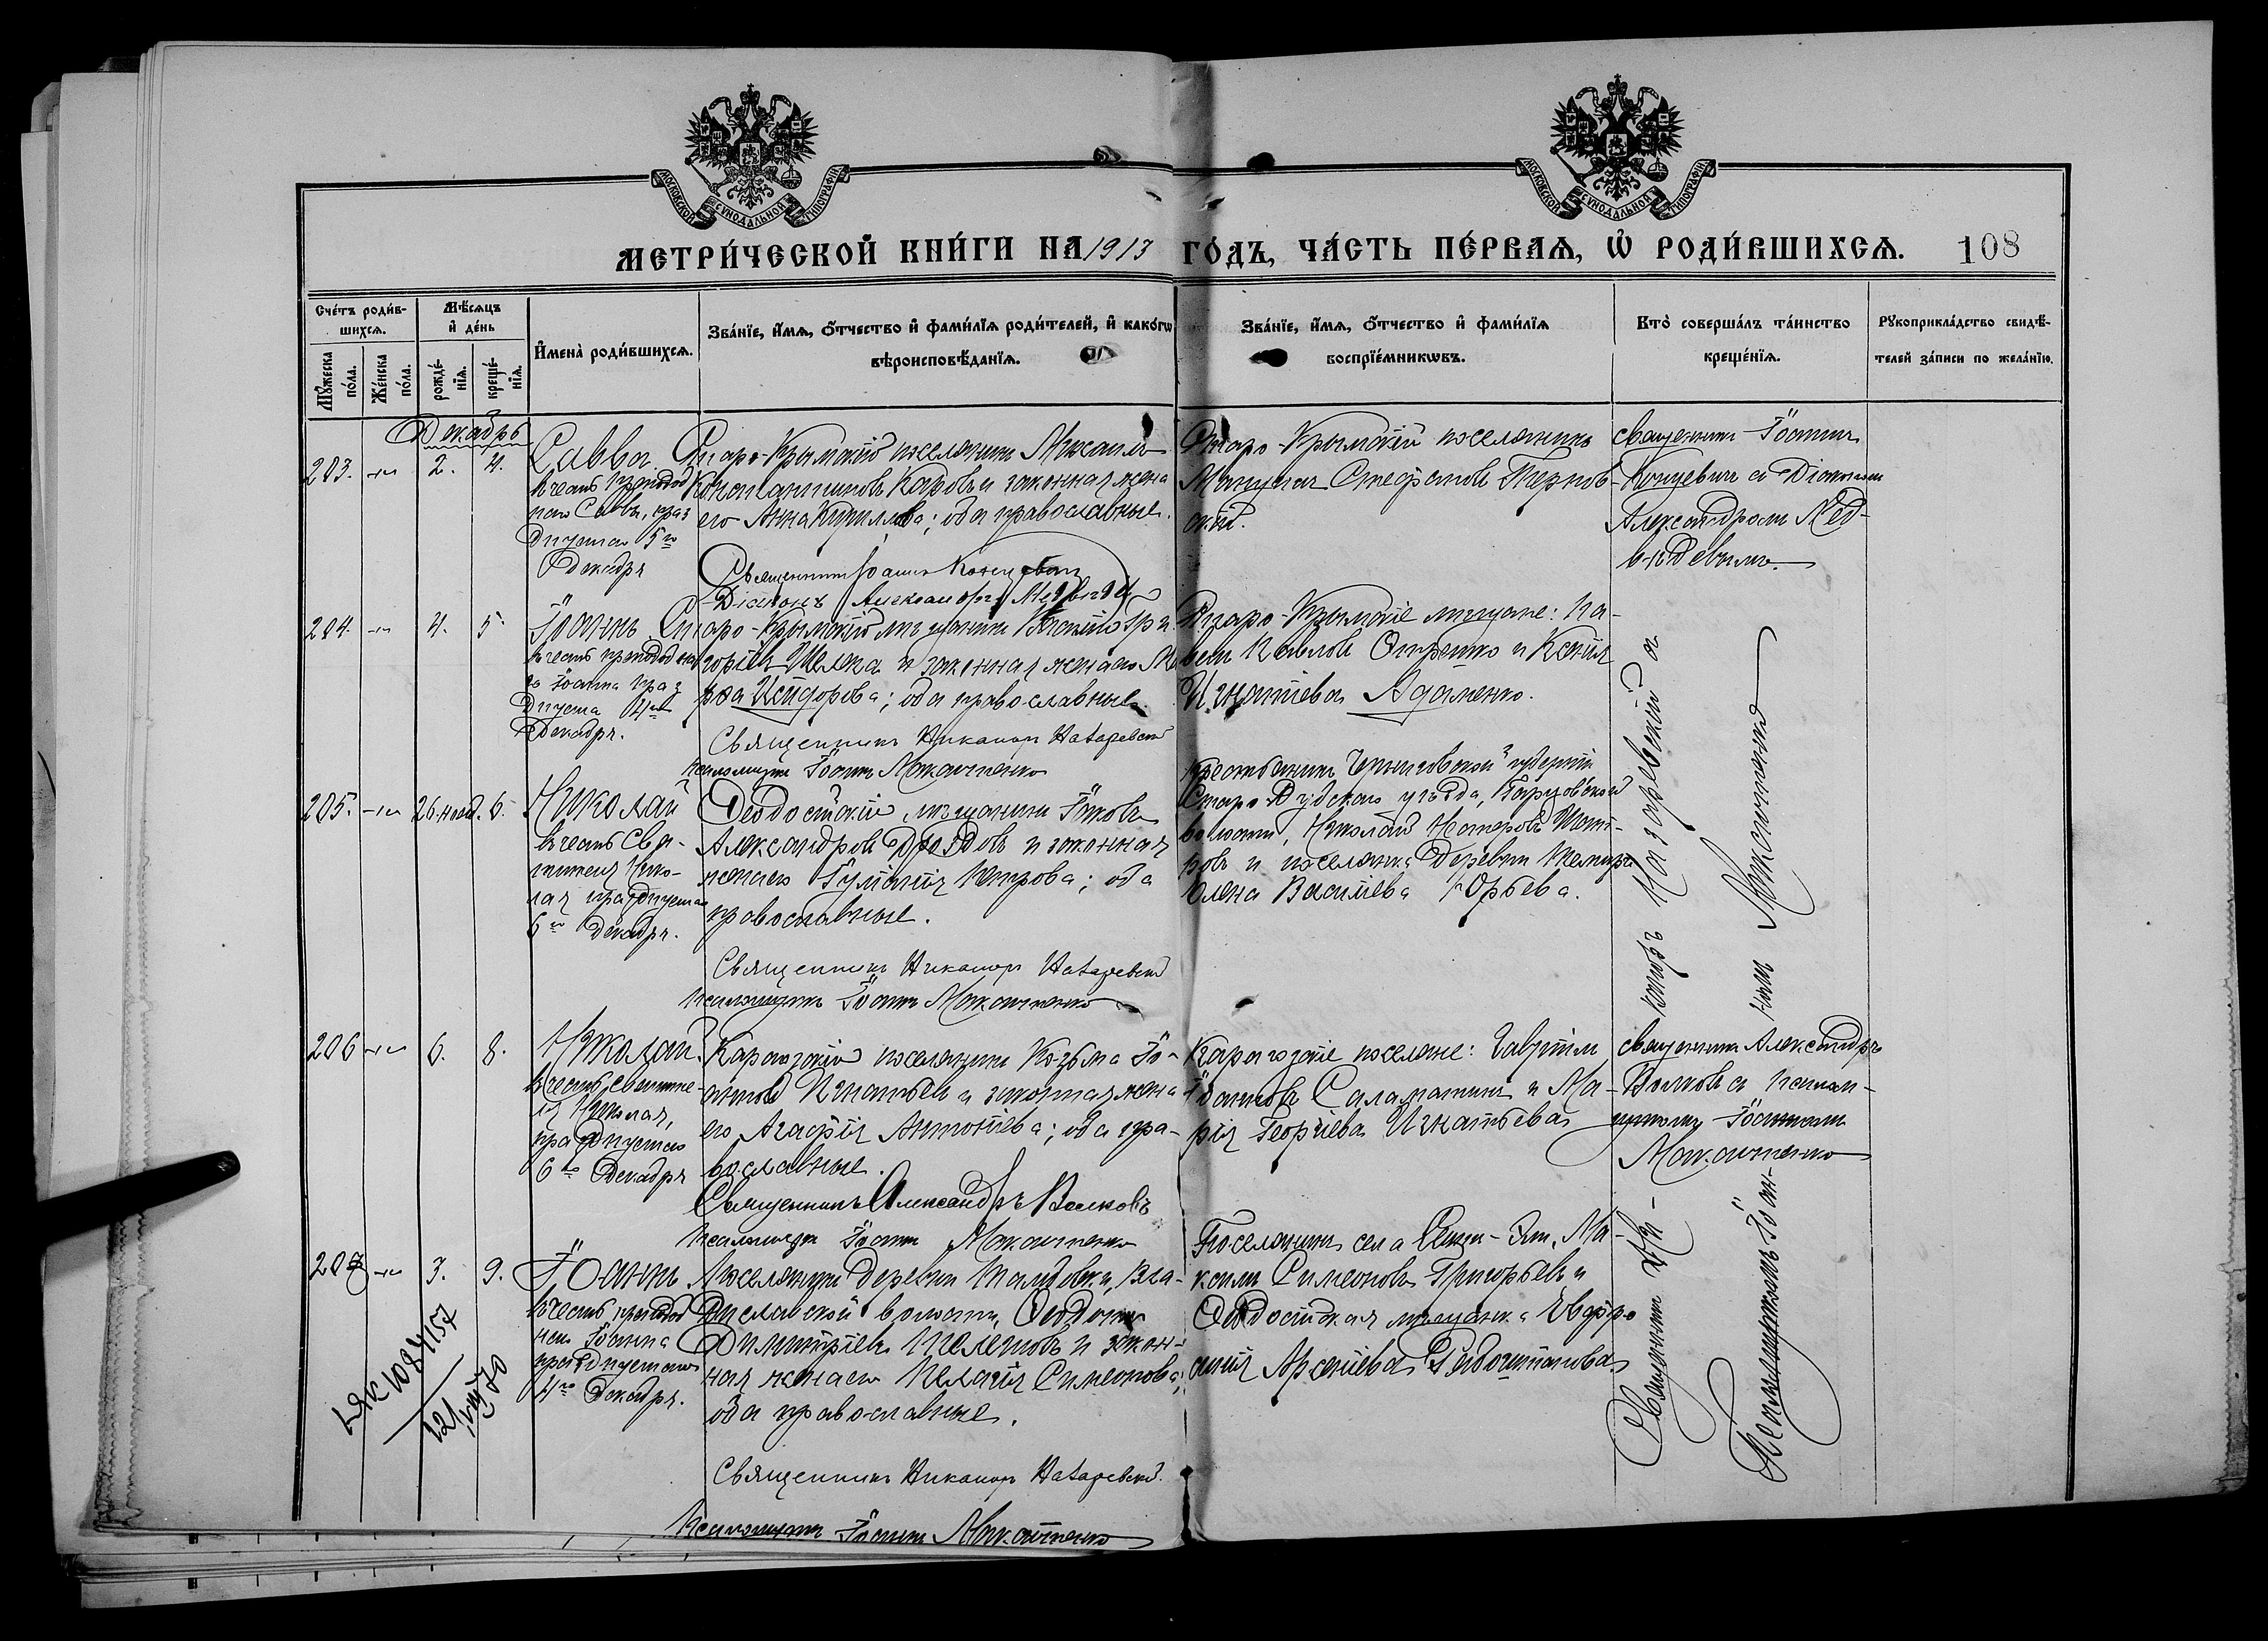 МОСКОВСКОЙ СУНОДАЛЬНОЙ ТИПОГРАФІИ
МОСКОВСКОЙ СУНОДАЛЬНОЙ ТИПОГРАФІИ
МЕТРИ́ЧЕСКОЙ КНИ́ГИ НА 1913 ГО́ДЪ, ЧА́СТЬ ПЕ́РВАѦ, Ѡ҆ РОДИ́ВШИХСѦ.
108
Сче́тъ роди́в-
шихсѧ.
Мѣ́сѧцъ
и҆ де́нь
Мꙋ́жеска
по́ла.
Же́нска
по́ла.
рожде́-
нїѧ.
креще́-
нїѧ.
И҆мена̀ роди́вшихсѧ.
Зва́нїе, и҆́мѧ, ѻ҆́тчество и҆ фами́лїѧ роди́телей, и҆ како́гѡ
вѣроисповѣ́данїѧ.
Зва́нїе, и҆́мѧ, ѻ҆́тчество и҆ фами́лїѧ
воспрїе́мникѡвъ.
Кто̀ соверша́лъ та́инство
креще́нїѧ.
Рꙋкоприкла́дство свидѣ́-
телей за́писи по жела́нїю.
Декабрь
203.
2.
4.
Савва.
въ честь преподоб
наго Саввы, праз
днуемаго 5го
Декабря
Старо-Крымскій поселянинъ Михаилъ
Константиновъ Каровъ и законная жена
его Анна Кириллова; оба православные.
Священникъ Іоаннъ Концевичъ
Діаконъ Александръ Медвѣдевъ
Старо-Крымскій поселянинъ
Стефановъ Тернов-
скій.
священникъ Іоаннъ
Концевичъ съ Діакономъ
Александромъ Мед-
вѣдевымъ.
204.
4.
5.
Іоаннъ
въ честь преподобна
го Іоанна праз
днуемаго 4го
Декабря.
Старо-Крымскій мѣщанинъ Гри-
горіевъ Шелека и законная жена его Ма
рѳа Исидорова; оба православные.
Священникъ Никаноръ Назаревскій
псаломщикъ Іоаннъ Макаитенко
Старо-Крымскіе мѣщане: Па-
велъ Павловъ и Ксенія
Игнатіева Адаменко.
205.
26 нояб.
6.
Николай
въ честь Свя-
тителя Нико-
лая празднуемаго
6го Декабря.
Ѳеодосійскій мѣщанинъ Іаковъ
Александровъ Дроздовъ и законная
жена его Іуліанія Петрова; оба
православные.
Священникъ Никаноръ Назаревскій
Псаломщикъ Іоаннъ Макаитенко
Крестьянинъ Черниговской губерніи
Стародубскаго уѣзда,
волости, Николай Несторовъ
ровъ и поселянка деревни
Елена Васильева Юрьева.
206
6.
8.
Николай.
въ честь святите-
ля Николая,
празднуемаго
6го Декабря
поселянинъ Козьма Іо-
анновъ Игнатьевъ и законная жена
его Агафія Антоніева; оба пра-
вославные.
Священникъ Александръ Волковъ
Псаломщикъ Іоаннъ Макаитенко
поселяне: Гавріилъ
Іоанновъ Саламатинъ и Ма-
рія Георгіева Игнатьева
священникъ Александръ
Волковъ съ псалом-
щикомъ Іоанномъ
Макаитенко
207
3.
9.
Іоаннъ
въ честь преподоб
наго Іоанна
празднуемаго
4го Декабря.
Поселянинъ деревни Вла-
диславской волости,
Димитріевъ Шелестовъ и закон-
ная жена его Пелагія Симеонова;
оба православные.
Священникъ Никаноръ Назаревскій.
Псаломщикъ Іоаннъ Макаитенко
Поселянинъ села Ма-
Симеоновъ Григорьевъ и
Ѳеодосійская мѣщанка Евфро
синія Арсеніева
Священникъ Ни-
каноръ Назаревскій съ
Псаломщикомъ Іоан-
номъ Макаитенко